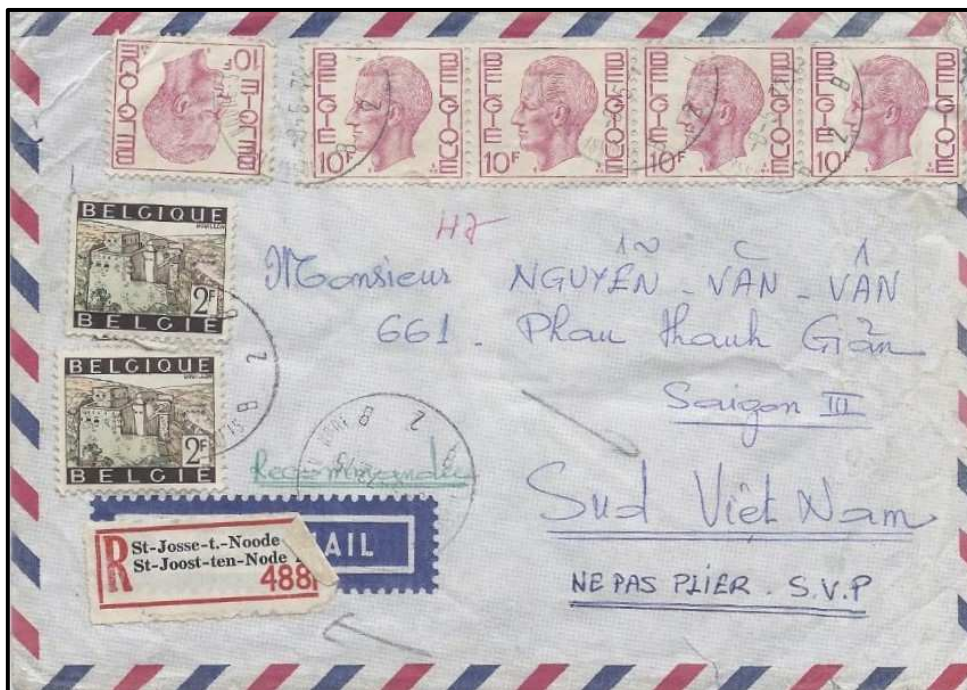 BELGIQUE
BELGIE
10F
BELGIQUE
BELGIE
10F
BELGIQUE
BELGIE
10F
BELGIQUE
BELGIE
10F
BELGIQUE
BELGIE
10F
BELGIQUE
2F
BELGIE
BELGIQUE
2F
BELGIE
Monsieur NGUYỄN - VĂN - VÂN
661 - Phan Thanh Giản
Saigon III
Recommandée
Sud Việt Nam
NE PAS PLIER . S.V.P
R
St-Josse-t.-Noode
St-Joost-ten-Node
488